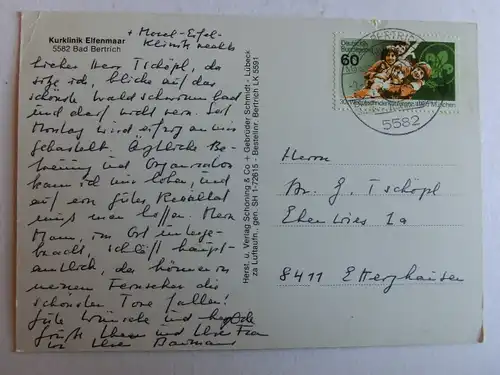 Kurklinik Elfenmaar
5582 Bad Bertrich
+ Mosel-Eifel-
Klinik rechts
Lieber Herr Tschöpl, da
sitze ich, blicke auf das
schönste Waldschwimmbad
und darf nicht rein. Seit
Montag wird eifrig an mir
gebastelt. Ärztliche Be-
treuung und Organisation
kann ich nur loben, und
auf ein gutes Resultat
muß man hoffen. Mein
Mann, im Ort unterge-
bracht, schläft haupt-
amtlich, das können in
meinem Fernseher die
schönsten Tore fallen!
Gute Wünsche und herzliche
Grüße Ihnen und Ihrer Frau
von Ihrer
Herst. u. Verlag Schöning & Co + Gebrüder Schmidt - Lübeck
za Luftaufn., gen. SH 1-72615 - Bestellnr. Bertrich LK 5591
Deutsche
Bundespost
60
5582
Herrn
Dr. G. Tschöpl
Eben Wies 1a
8411 Etterzhausen